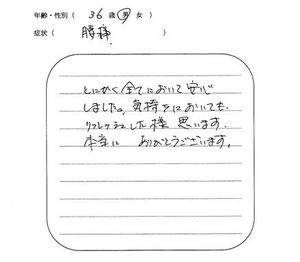 年齢・性別( 36 歳 男 女 )
症状 ( 腰痛 )
とにかく全てにおいて安心
しました。気持ちにおいても、
リフレッシュした様 思います。
本当に ありがとうございます。